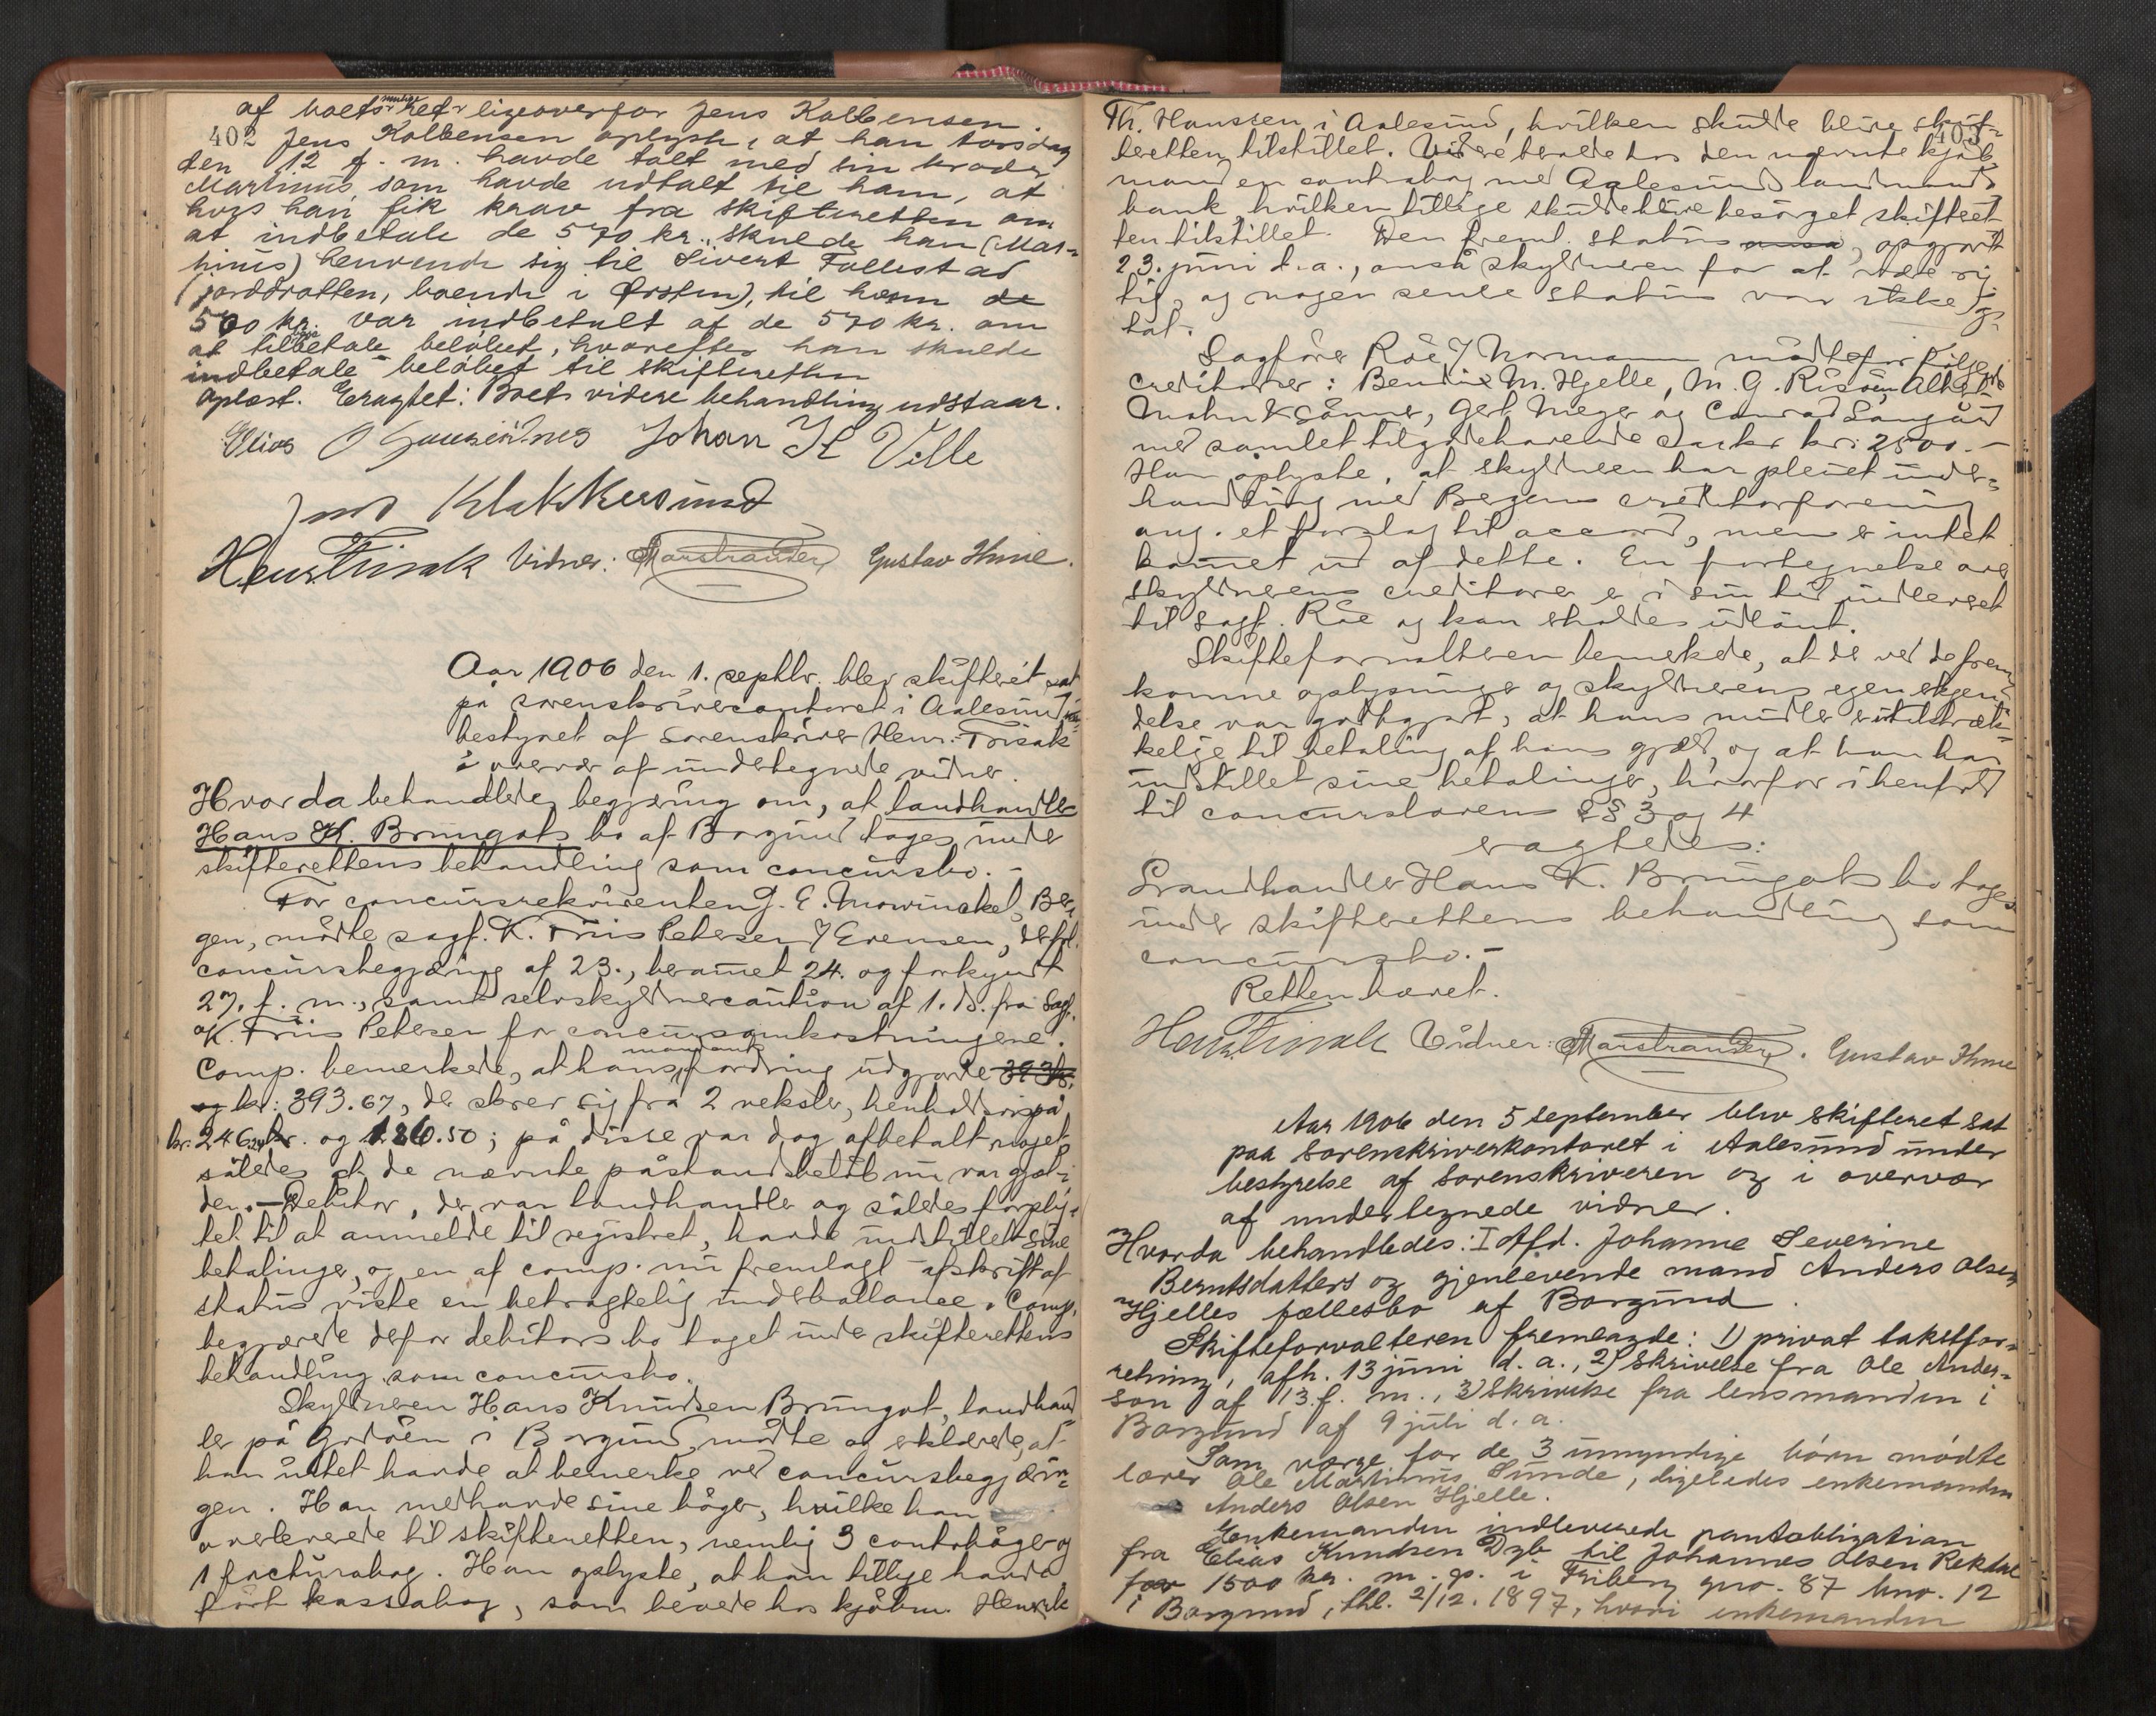 af boets mulige ret ligeoverfor Jens Kolbensen.
402 Jens Kolbensen oplyste, at han torsdag
den 12 f. m. havde talt med sin broder
Martinus, som havde udtalt til ham, at
hvis han fik krav fra skifteretten om
at indbetale de 570 kr., skulde han (Mar-
tinus) henvende sig til Sivert Follestad
(jorddrotten, boende i Ørsten), til hvem de
500 kr. var indbetalt af de 570 kr. om
at tilbetale beløbet, hvorefter han skulde
indbetale beløbet til skifteretten
Oplæst. Eragtet: Boets videre behandling udstaar.
Elias Johan Ville
Jens Klokkersund
Henr. Finsak Vidner: Marstrander Gustav Hmie.
Aar 1906 den 1. septbr. blev skifteret sat
på sorenskrivercontoret i Aalesund,
bestyret af sorenskriver Henr. Finsak
i overvær af undertegnede vidner.
Hvor da behandledes begjæring om, at landhandler
Hans K. Brungots bo af Borgund tages under
skifterettens behandling som concursbo. -
For concursrekvirenten J. E. Mowinckel, Ber-
gen, mødte sagf. K. Friis Petersen / Evensen, der frl.
concursbegjæring af 23., berammet 24. og forkyndt
27. f. m., samt selvskyldnercaution af 1. ds. fra Sagf.
K. Friis Petersen for concursomkostningene.
Comp. bemerkede, at hans mandants fordring udgjorde 393 kr.
og kr: 393.67, der skrev sig fra 2 veksler, henholdsvis på
kr. 246 og 186.50; på disse var dog afbetalt noget,
således at de nævnte påstandsbeløb nu var gjæl-
den. - Debitor, der var landhandler og således forplig-
tet til at anmelde til registret, havde indstillet sine
betalinger, og en af comp. nu fremlagt afskrift af
status viste en betragtelig underballance. Comp.
begjærede derfor debitors bo taget under skifterettens
behandling som concursbo.
Skyldneren Hans Knudsen Brungot, landhand-
ler på Godøen i Borgund, mødte og erklærede, at
han intet havde at bemerke ved concursbegjærin-
gen. Han medhavde sine bøger, hvilke han
overleverede til skifteretten, nemlig 3 contobøger og
1 facturabog. Han oplyste, at han tillige havde
ført kassabog, som beroede hos kjøbm. Henrik
Th. Hanssen i Aalesund, hvilken skulde blive skift- 403
teretten tilstillet. Videre beroede hos den nævnte kjøb-
mand en contrabog med Aalesunds landmands
bank, hvilken tillige skulde blive besørget skifteret-
ten tilstillet. Den freml. status ansa, opgjort
23. juni d. a., anså skyldneren for at være rig-
tig, og nogen senere status var ikke op-
tat.
Sagfører Råe / Normann mødte for følgende
creditorer: Bendix M. Hjelle, M. G. Risøen, Albert
Mohn & sønner, Gerh Meyer og Conrad Langaard
med samlet tilgodehavende ca kr: 2500. -
Han oplyste, at skyldneren har pleiet under-
handling med Bergens creditorforening
ang. et forslag til accord, men er intet
kommet ud af dette. En fortegnelse over
skyldnerens creditorer er i sin tid indleveret
til sagf. Råe og kan skaldes udlånt.
Skifteforvalteren bemerkede, at det ved de frem-
komne oplysninger og skyldnerens egen erkjen-
delse var godtgjort, at hans midler er utilstræk-
kelige til betaling af hans gjæld, og at han har
indstillet sine betalinger, hvorfor i henhold
til concurslovens §§ 3 og 4
eragtedes:
Landhandler Hans K. Brungots bo tages
under skifterettens behandling som
concursbo. -
Retten hævet.
Henr. Finsak Vidner: Marstrander. Gustav Hmie
Aar 1906 den 5 september blev skifteret sat
paa sorenskriverkontoret i Aalesund under
bestyrelse af sorenskriveren og i overvær
af undertegnede vidner.
Hvorda behandledes: I Afd. Johanne Severine
Berntsdatters og gjenlevende mand Anders Olsen
Hjelles fællesbo af Borgund.
Skifteforvalteren fremlagde: 1) privat takstfor-
retning, afh. 13 juni d. a., 2) skrivelse fra Ole Ander-
son af 13. f. m., 3) skrivelse fra lensmanden i
Borgund af 9 juli d. a.
Som værge for de 3 umyndige børn mødte
lærer Ole Martinus Sunde, ligeledes enkemanden
Anders Olsen Hjelle.
Enkemanden indleverede pantobligation
fra Elias Knudsen Dyb til Johannes Olsen Rekdal
for 1500 kr. m. p. i Friberg gno. 87 bno. 12
i Borgund, thl. 2/12. 1897, hvori enkemanden